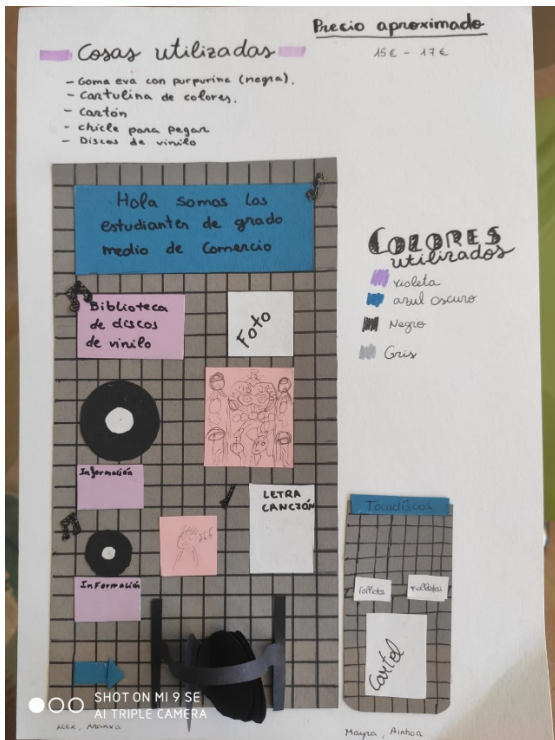 Precio aproximado
15€ - 17€
Cosas utilizadas
- Goma eva con purpurina (negra).
- Cartulina de colores.
- Cartón
- chicle para pegar
- Discos de vinilo
Hola somos los
estudiantes de grado
medio de Comercio
Biblioteca
de discos
de vinilo
Foto
Información
LETRA
CANCIÓN
Información
COLORES
utilizados
violeta
azul oscuro
Negro
Gris
Tocadiscos
folletos
folletos
Cartel
SHOT ON MI 9 SE
AI TRIPLE CAMERA
Mayra, Ainhoa